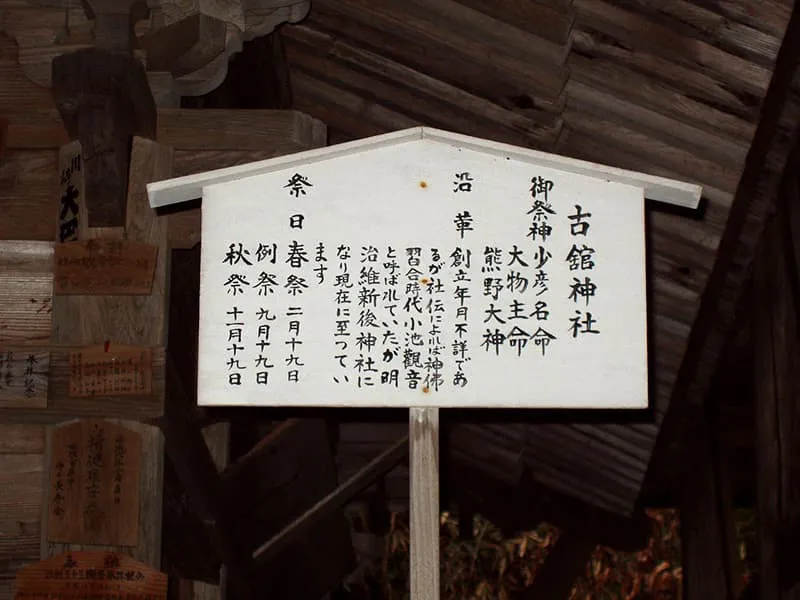 古舘神社
御祭神 少彦名命
大物主命
熊野大神
沿革 創立年月不詳であ
るが社伝によれば神佛
習合時代小池觀音
と呼ばれていたが明
治維新後神社に
なり現在に至つてい
ます
祭日 春祭 二月十九日
例祭 九月十九日
秋祭 十一月十九日